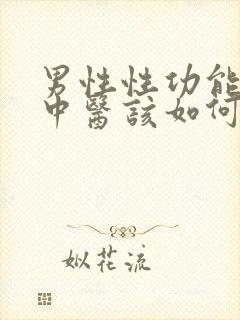 男性性功能
中醫該如何
姒花流